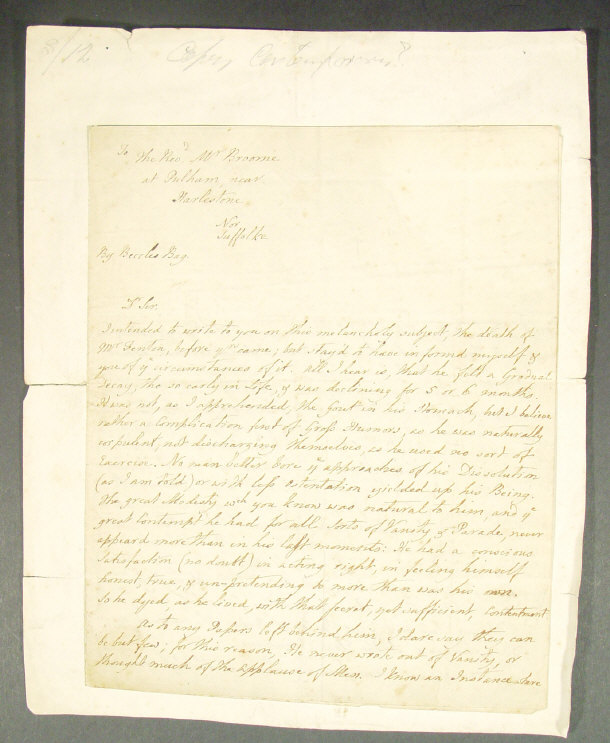 3/12 Copy, Contemporary?
To The Revd Mr Broome
at Pulham near
Harlestone
Nor
Suffolke
By Beccles Bag.
Dr Sir.
I intended to write to you on this melancholy subject, the death of
Mr Fenton, before yrs came; but stay'd to have inform'd myself &
you of ye circumstances of it. All I hear is, that he felt a Gradual
Decay, tho so early in Life, & was declining for 5 or 6 months.
It was not, as I apprehended, the Gout in his Stomach, but I believe
rather a Complication first of Gross Humors, as he was naturally
corpulent, not discharging themselves, as he used no sort of
Exercise. No man better bore ye approaches of his Dissolution
(as I am told) or with less ostentation yielded up his Being.
The great Modesty wch you know was natural to him, and ye
great Contempt he had for all sorts of Vanity & Parade, never
appeard more than in his last moments: He had a conscious
Satisfaction (no doubt) in acting right, in feeling himself
honest, true, & un-pretending to more than was his own.
So he dyed, as he lived, with that secret, yet sufficient, Contentment
As to any Papers left behind him, I dare say they can
be but few; for this reason, He never wrote out of Vanity, or
thought much of the Applause of Men. I know an Instance where